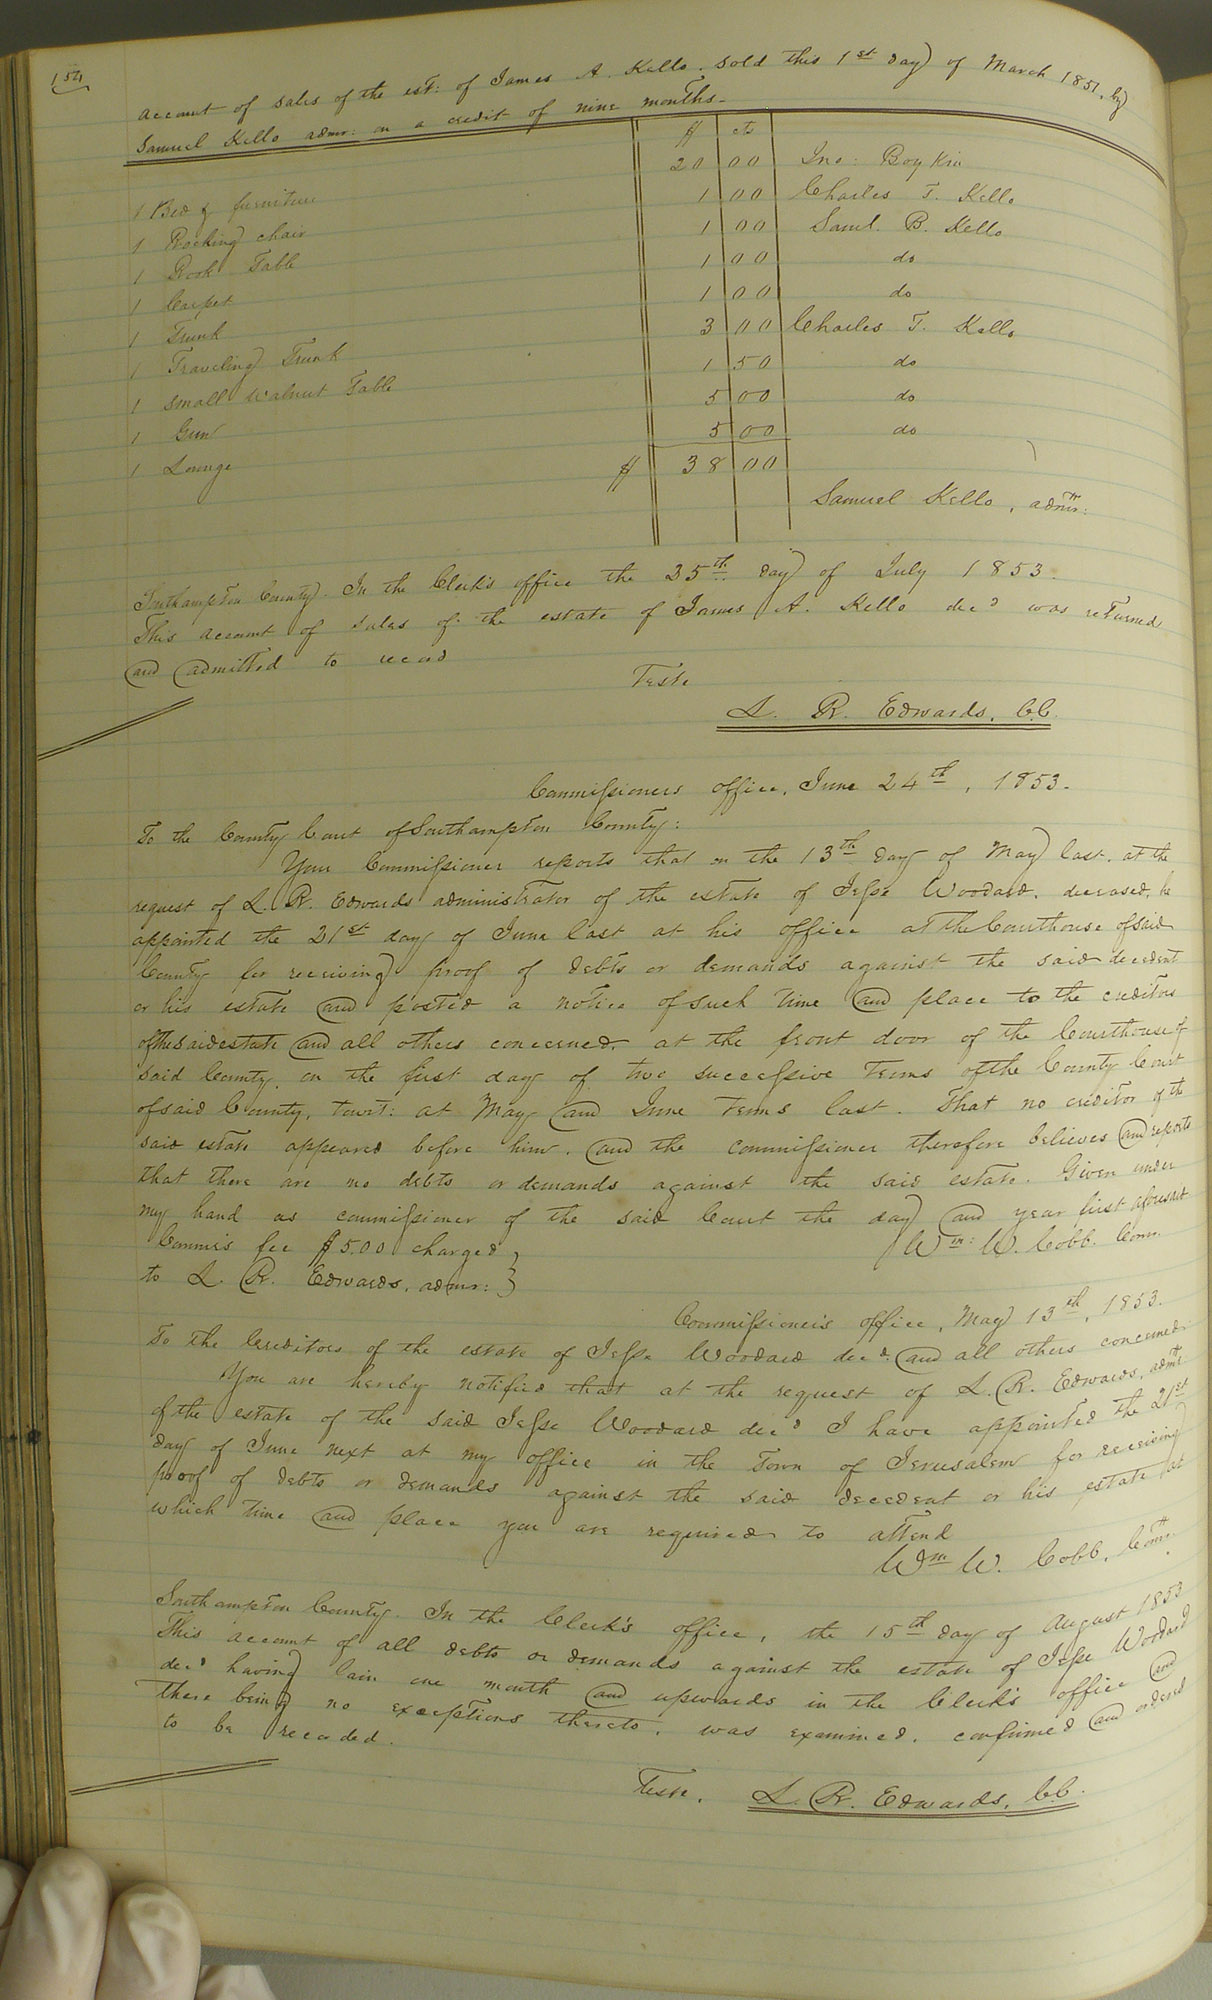 154
Account of sales of the est: of James A. Kello. sold this 1st day of March 1851, by
Samuel Kello admr: on a credit of nine months.
$ cts
1 Bed & furniture 20 00 Jno: Boykin
1 Rocking chair 1 00 Charles T. Kello
1 Book Table 1 00 Saml. B. Kello
1 Carpet 1 00 do
1 Trunk 1 00 do
1 Traveling Trunk 3 00 Charles T. Kello
1 small walnut Table 1 50 do
1 Gun 5 00 do
1 Lounge 5 00 do
$ 38 00
Samuel Kello, admr:
Southampton County. In the Clerk's office the 25th day of July 1853.
This account of sales of the estate of James A. Kello decd was returned
and admitted to record
Teste
L. R. Edwards, C.C.
Commissioners office, June 24th, 1853.
To the County Court of Southampton County:
Your Commissioner reports that on the 13th day of May last, at the
request of L. R. Edwards administrator of the estate of Jesse Woodard, deceased, he
appointed the 21st day of June last at his office at the Courthouse of said
County for receiving proof of debts or demands against the said decedent
or his estate and posted a notice of such time and place to the creditors
of the said estate and all others concerned, at the front door of the Courthouse of
said County, on the first day of two successive Terms of the County Court
of said County, towit: at May and June Terms last. That no creditor of the
said estate appeared before him, and the commissioner therefore believes and reports
that there are no debts or demands against the said estate. Given under
my hand as commissioner of the said Court the day and year first aforesaid
Commr's fee $5.00 charged
Wm: W. Cobb, Comr.
to L. R. Edwards, admr:
Commissioner's office, May 13th, 1853.
To the Creditors of the estate of Jesse Woodard decd: and all others concerned
You are hereby notified that at the request of L. R. Edwards, admr
of the estate of the said Jesse Woodard decd I have appointed the 21st
day of June next at my office in the Town of Jerusalem for receiving
proof of debts or demands against the said decedent or his estate at
which time and place you are required to attend
Wm W. Cobb, Comr.
Southampton County. In the Clerk's office, the 15th day of August 1853
This account of all debts or demands against the estate of Jesse Woodard
decd having lain one month and upwards in the Clerk's office and
there being no exceptions thereto, was examined, confirmed and ordered
to be recorded.
Teste, L. R. Edwards, C.C.